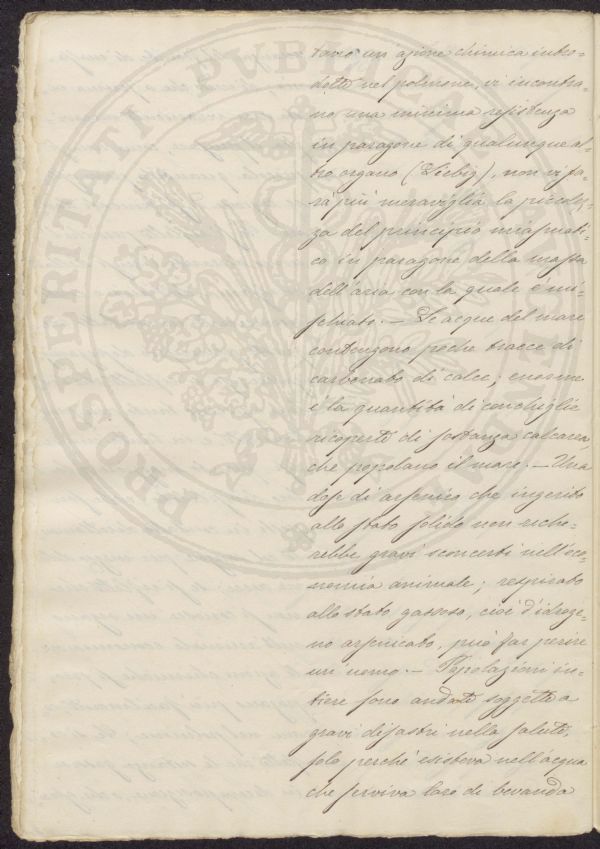 tano un'azione chimica intro-
dotte nel polmone, vi incontra-
no una minima resistenza
in paragone di qualunque al-
tro organo (Liebig), non vi fa-
rà più meraviglia la piccolez-
za del principio miasmati-
co in paragone della massa
dell'aria con la quale è mi-
schiato. — Le acque del mare
contengono poche tracce di
carbonato di calce; enorme
è la quantità di conchiglie
ricoperte di sostanza calcarea,
che popolano il mare. — Una
dose di arsenico che ingerito
allo stato solido non reche-
rebbe gravi sconcerti nell'eco-
nomia animale; respirato
allo stato gassoso, cioè d'idroge-
no arsenicato, può far perire
un uomo. — Popolazioni in-
tiere sono andate soggette a
gravi disastri nella salute,
solo perché esisteva nell'acqua
che serviva loro di bevanda
PROSPERITATI PUBLICAE